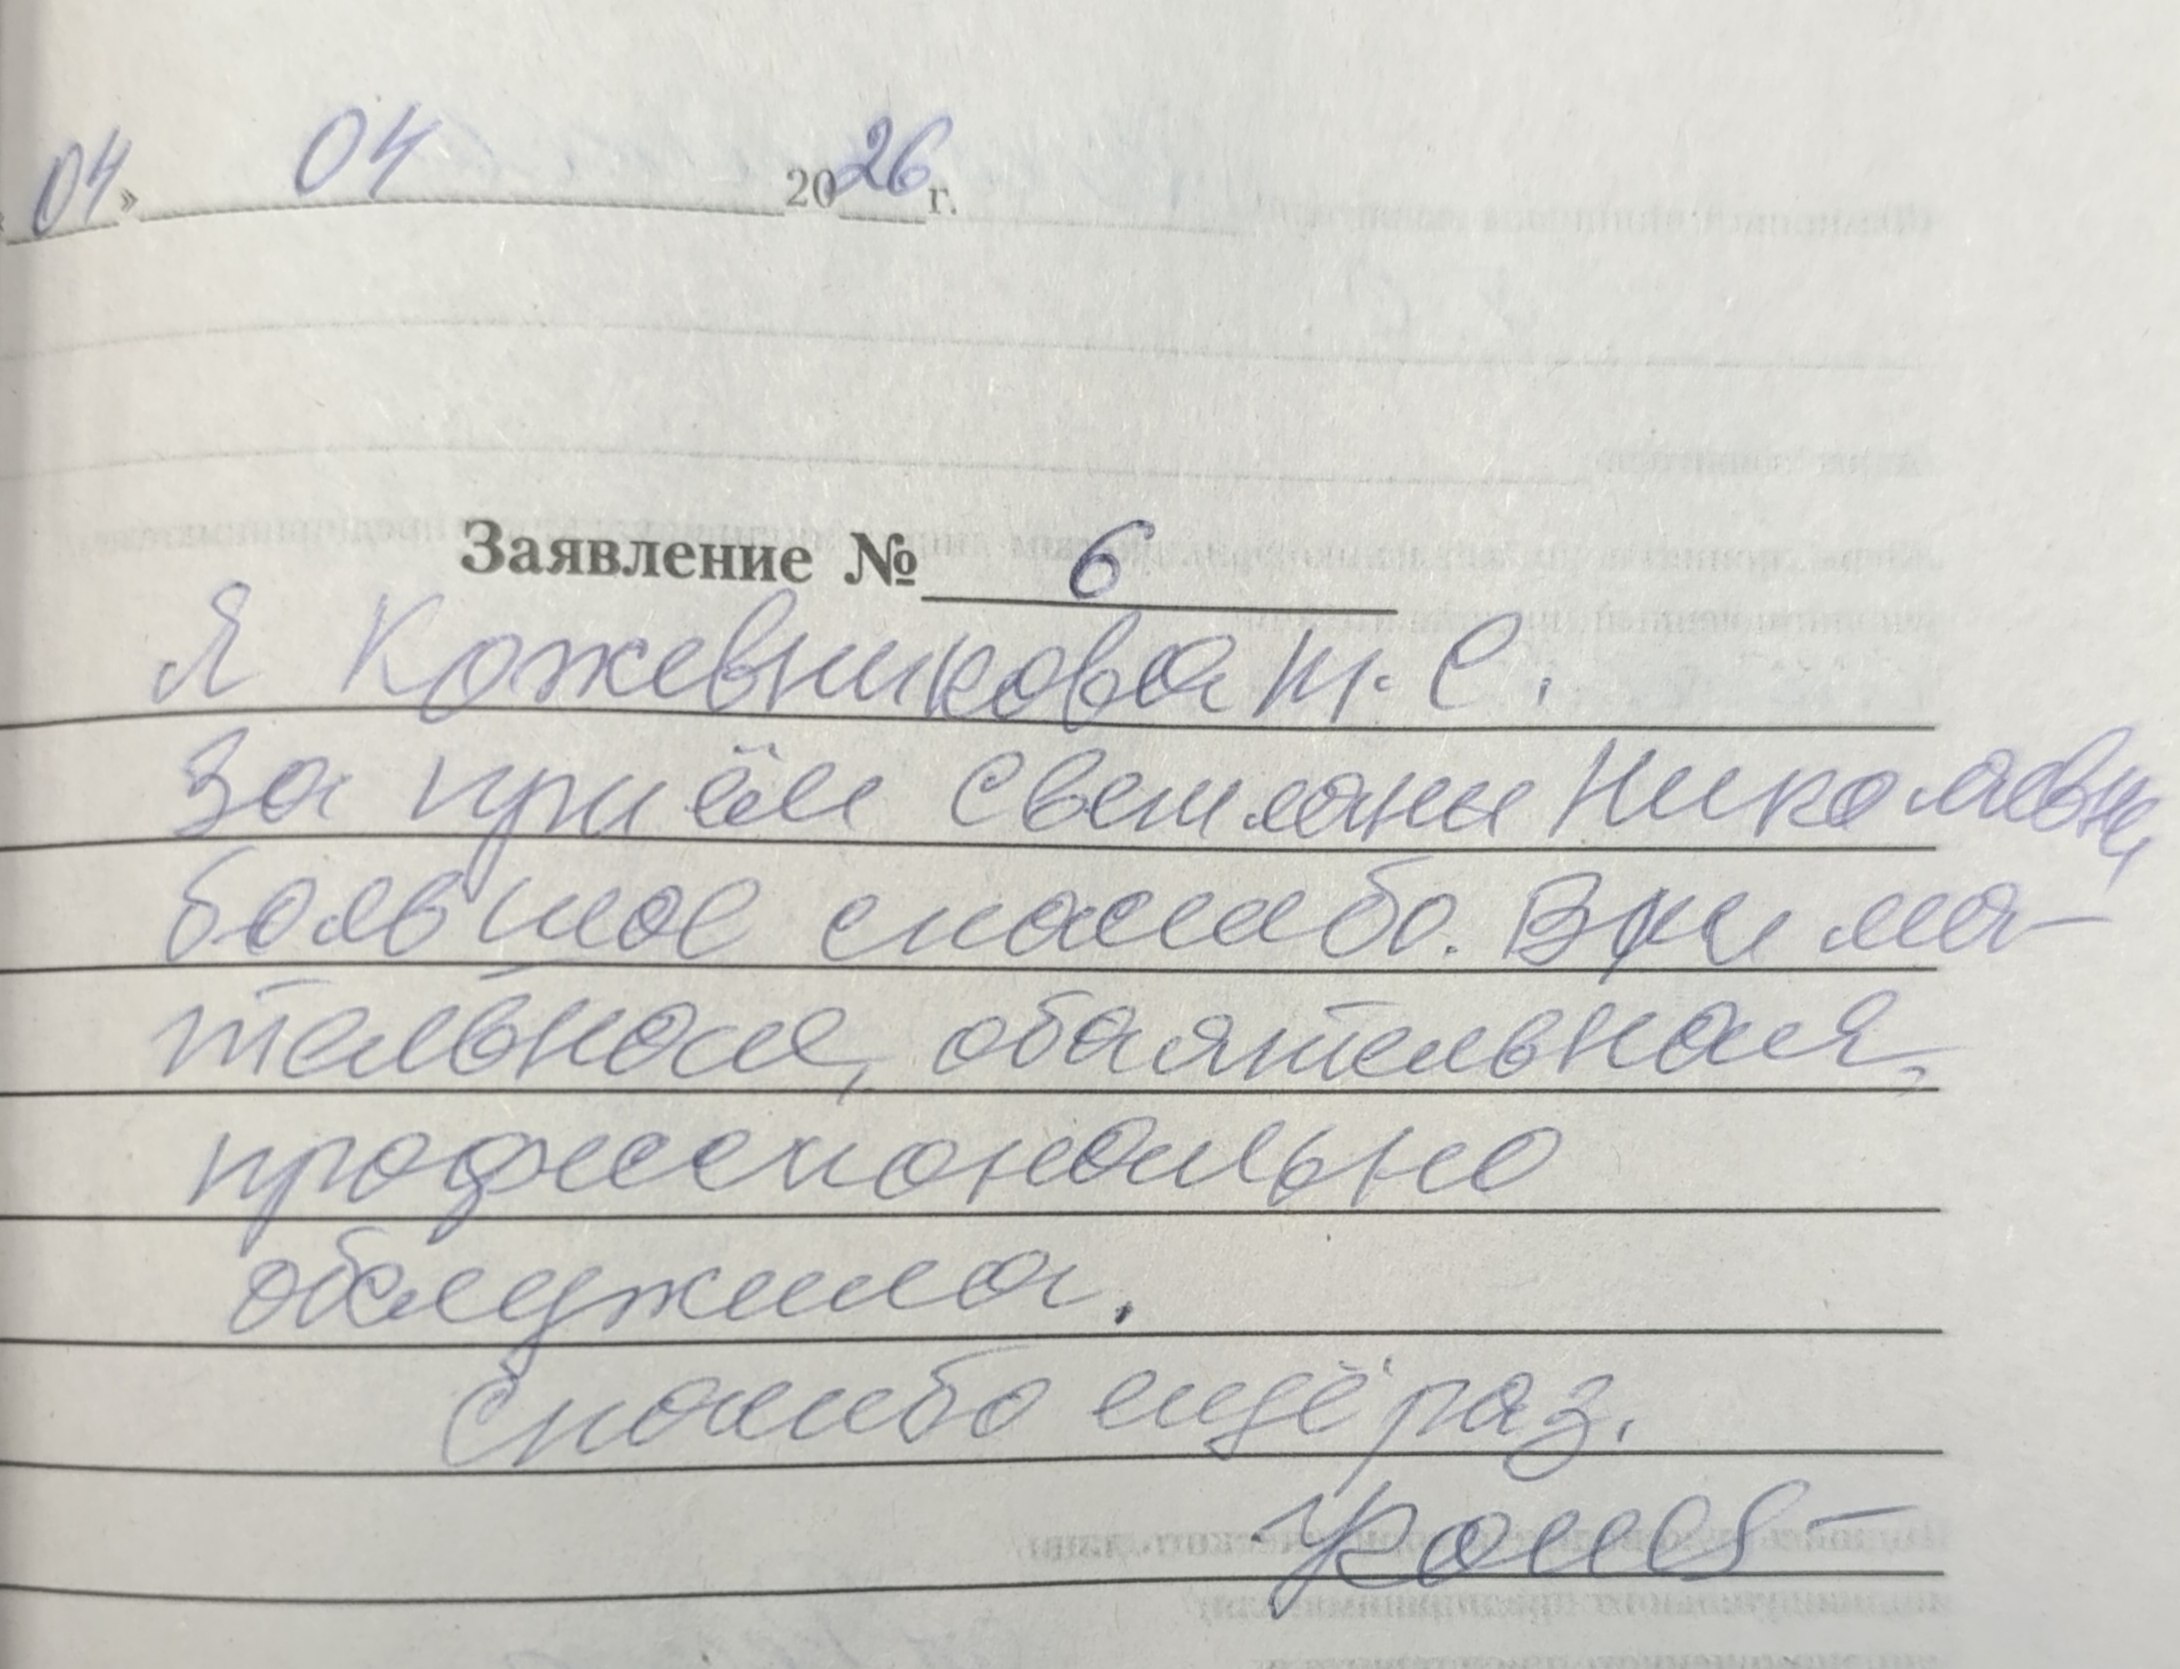 «04» 04 2026 г.
Заявление № 6
Я Кожевникова Т. С.
За приём Светланы Николаевны,
большое спасибо. Внима-
тельная, обаятельная,
профессионально
обслужила.
Спасибо ещё раз.